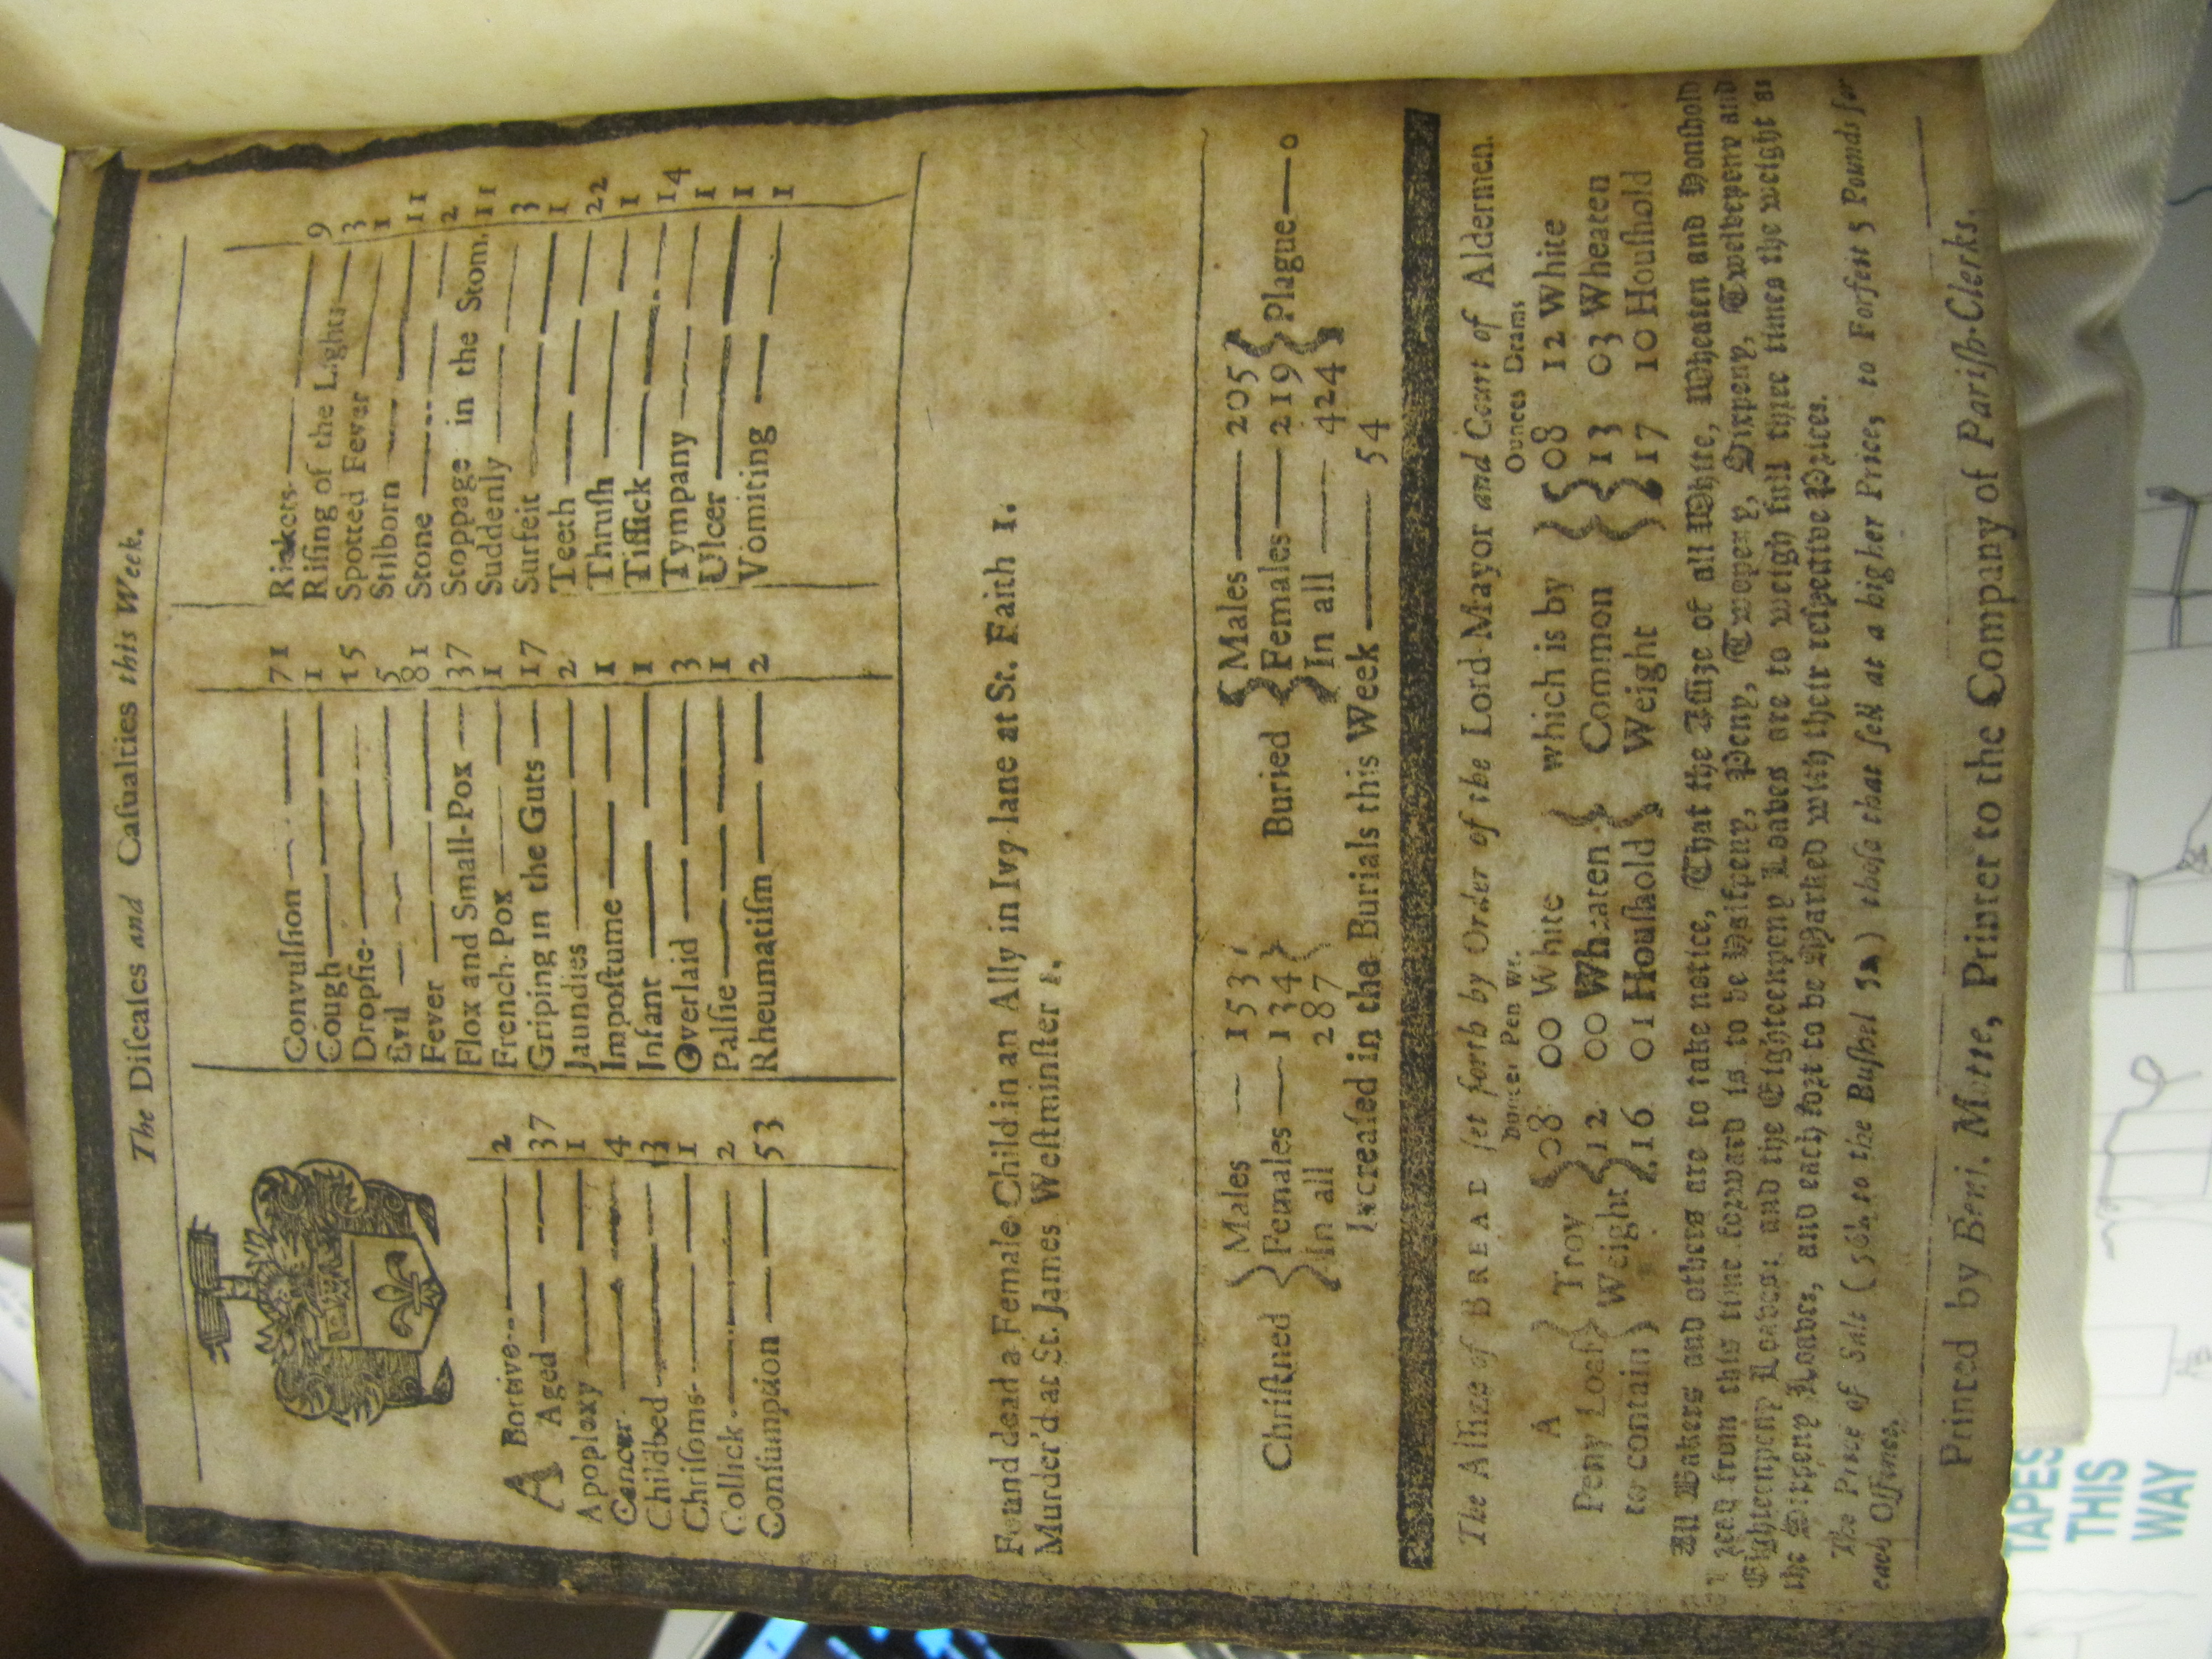 The Diſeaſes and Caſualties this Week.
A Bortive 2
Aged 37
Apoplexy 1
Cancer 4
Childbed 13
Chriſoms 1
Collick 2
Conſumption 53
Convulſion 71
Cough 1
Dropſie 15
Evil 5
Fever 81
Flox and Small-Pox 37
French-Pox 1
Griping in the Guts 17
Jaundies 2
Impoſtume 1
Infant 1
Overlaid 3
Palſie 1
Rheumatiſm 2
Rickets 9
Riſing of the Lights 3
Spotted Fever 1
Stilborn 11
Stone 2
Stoppage in the Stom. 11
Suddenly 3
Surfeit 1
Teeth 22
Thruſh 1
Tiſſick 14
Tympany 1
Ulcer 1
Vomiting 1
Found dead a Female Child in an Ally in Ivy lane at St. Faith 1.
Murder'd at St. James Weſtminſter 1.
Chriſtned { Males 153 Females 134 In all 287 }
Buried { Males 205 Females 219 In all 424 } Plague 0
Increaſed in the Burials this Week 54
The Aſſize of BREAD ſet forth by Order of the Lord-Mayor and Court of Aldermen.
Ounces Pen Wt. Ounces Drams
A Troy 08 00 White which is by 08 12 White
Peny Loaf Weight 12 00 Wheaten Common 13 03 Wheaten
to contain 16 01 Houſhold Weight 17 10 Houſhold
All Bakers and others are to take notice, That the Aſſize of all White, Wheaten and Houſhold
Bread from this time forward is to be Halfpeny, Peny, Twopeny, Sixpeny, Twelvepeny and
Eighteenpeny Loaves: and the Eighteenpeny Loaves are to weigh full three times the weight as
the Sixpeny Loaves, and each ſort to be Marked with their reſpective Prices.
The Price of Salt (56 lb to the Buſhel) thoſe that ſell at a higher Price, to Forfeit 5 Pounds for
each Offence.
Printed by Benj. Motte, Printer to the Company of Pariſh-Clerks.
TAPES
THIS
WAY